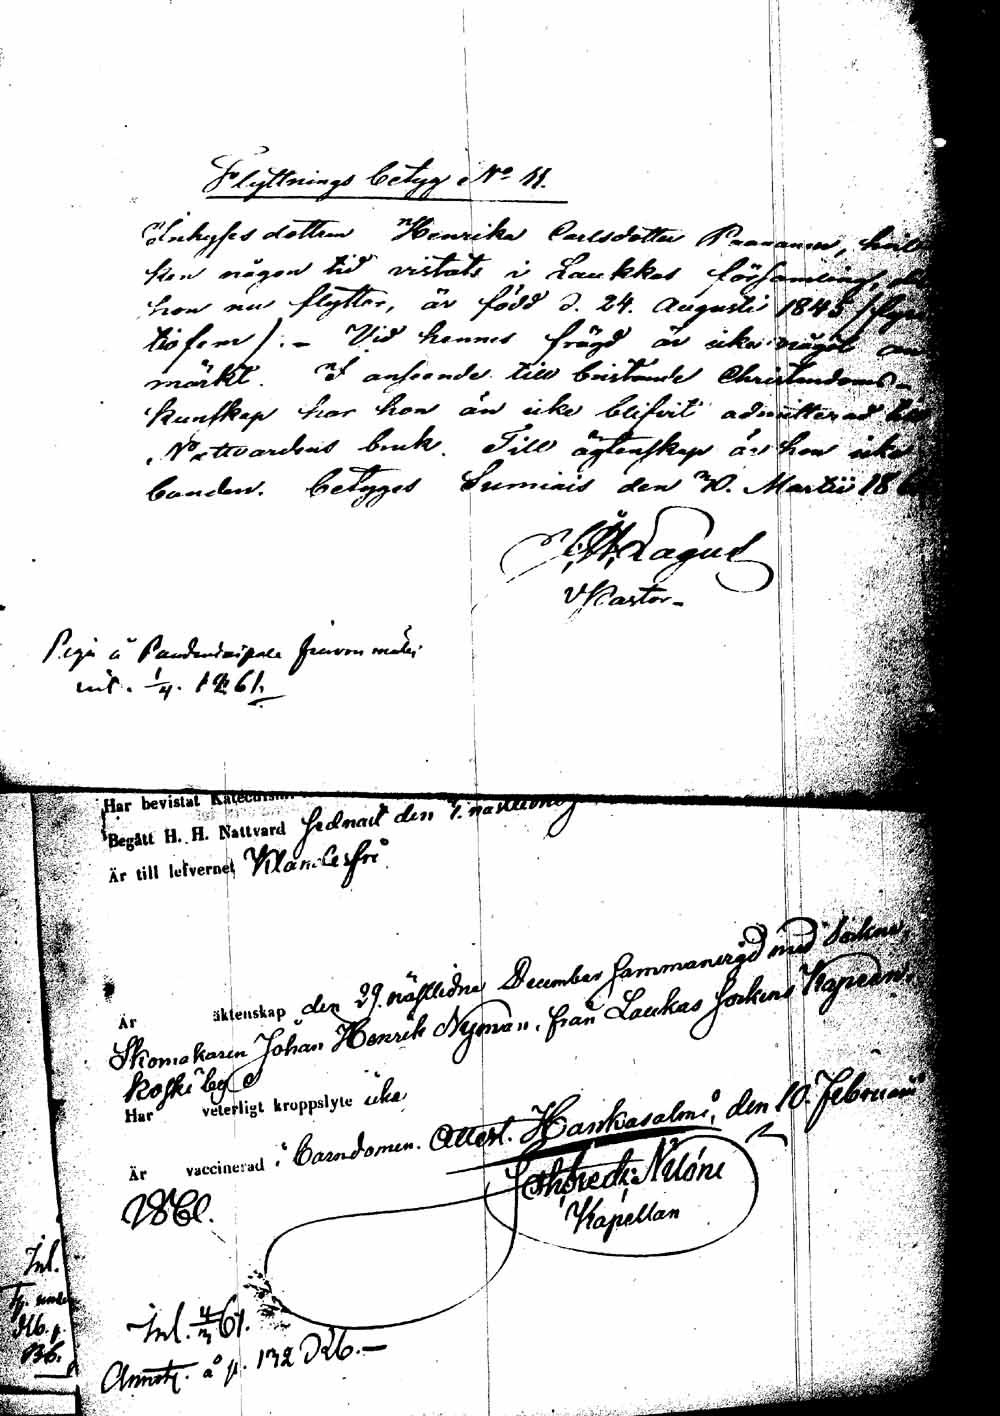 Flyttnings betyg No 11.
Inhyses dottren Henrika Carlsdotter Paananen, hvil
ken någon tid vistats i Laukkas församling, dit
hon nu flyttar, är född d. 24. Augusti 1845 /fyra
tiofem/. – Vid hennes frägd är icke något an
märkt. I anseende till bristande Christendoms-
kunskap har hon än icke blifvit admitterad till
Nattvardens bruk. Till ägtenskap är hon icke
bunden. betyges Sumiais den 30. Martii 186
Lagus
V Pastor –
Piga å
inl. 1/4. 1861.
Har bevistat Katechismi
Begått H. H. Nattvard sednast den 1. nästledne
Är till lefvernet Klanderfri
Är äktenskap den 29. nästledne December sammanvigd med Sockne
Skomakaren Johan Henrik Nyman, från Laukas sockens Kapeen
koski by
Har veterligt kroppslyte icke
Är vaccinerad i barndomen. Attest. Hankasalmi, den 10. Februarii
1861.
Kapellan
Inl.
Inl. 4/3 61.
Dkb. p.
136.
Annot. å p. 132 Dkb. –